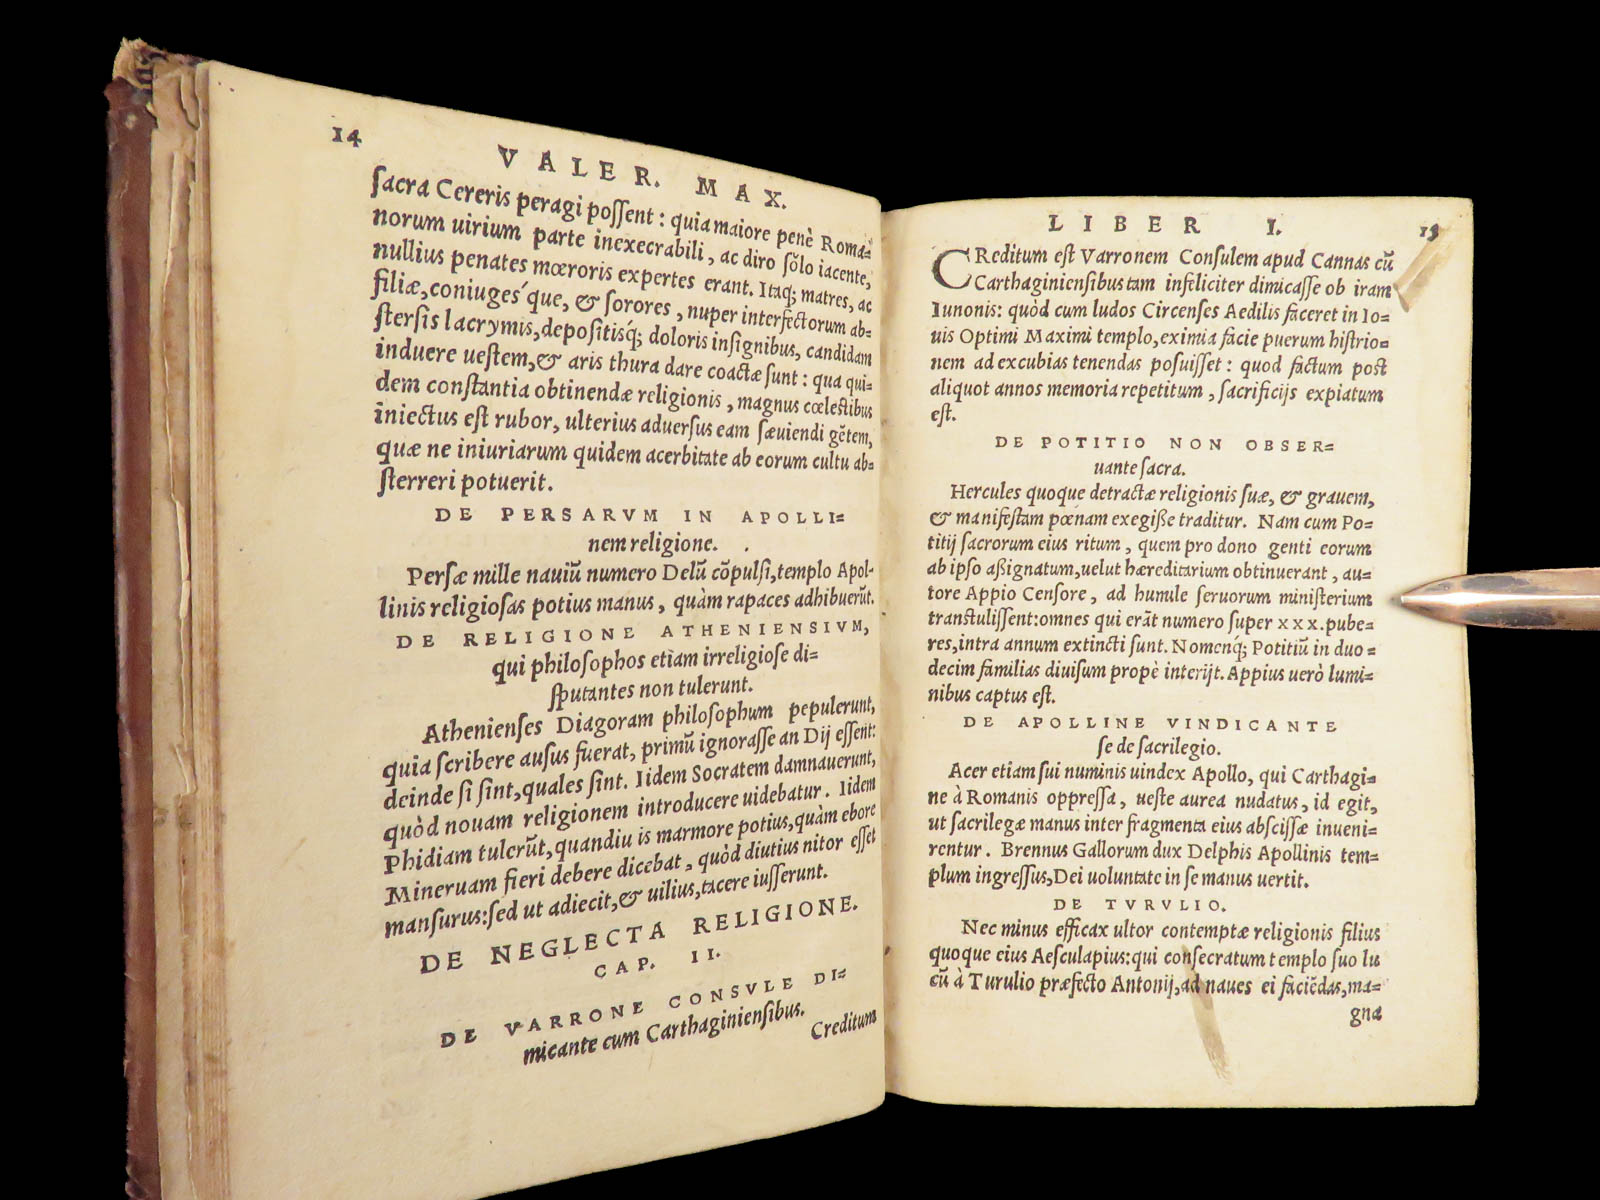 14
VALER. MAX.
sacra Cereris peragi possent : quia maiore penè Roma=
norum uirium parte inexecrabili, ac diro sõlo iacente,
nullius penates mœroris expertes erant. Itaq; matres, ac
filiæ, coniuges´que, & sorores, nuper interfectorum ab=
stersis lacrymis, depositisq́; doloris insignibus, candidam
induere uestem, & aris thura dare coactæ sunt : qua qui=
dem constantia obtinendæ religionis, magnus cœlestibus
iniectus est rubor, ulterius aduersus eam sæuiendi gẽtem,
quæ ne iniuriarum quidem acerbitate ab eorum cultu ab=
sterreri potuerit.
DE PERSARVM IN APOLLI=
nem religione.
Persæ mille nauiũ numero Delũ cõpulsi, templo Apol-
linis religiosas potius manus, quàm rapaces adhibuerũt.
DE RELIGIONE ATHENIENSIVM,
qui philosophos etiam irreligiose di=
sputantes non tulerunt.
Athenienses Diagoram philosophum pepulerunt,
quia scribere ausus fuerat, primũ ignorasse an Dij essent:
deinde si sint, quales sint. Iidem Socratem damnauerunt,
quòd nouam religionem introducere uidebatur. Iidem
Phidiam tulerũt, quandiu is marmore potius, quàm ebore
Mineruam fieri debere dicebat, quòd diutius nitor esset
mansurus: sed ut adiecit, & uilius, tacere iusserunt.
DE NEGLECTA RELIGIONE.
CAP. II.
DE VARRONE CONSVLE DI=
micante cum Carthaginiensibus.
Creditum
LIBER I. 15
CReditum est Varronem Consulem apud Cannas cũ
Carthaginiensibus tam infeliciter dimicasse ob iram
Iunonis: quòd cum ludos Circenses Aedilis faceret in Io=
uis Optimi Maximi templo, eximia facie puerum histrio=
nem ad excubias tenendas posuisset : quod factum post
aliquot annos memoria repetitum, sacrificijs expiatum
est.
DE POTITIO NON OBSER=
uante sacra.
Hercules quoque detractæ religionis suæ, & grauem,
& manifestam pœnam exegisse traditur. Nam cum Po=
titij sacrorum eius ritum, quem pro dono genti eorum
ab ipso assignatum, uelut hæreditarium obtinuerant, au=
tore Appio Censore, ad humile seruorum ministerium
transtulissent: omnes qui erãt numero super xxx. pube=
res, intra annum extincti sunt. Nomenq́; Potitiũ in duo=
decim familias diuisum propè interijt. Appius uerò lumi=
nibus captus est.
DE APOLLINE VINDICANTE
se de sacrilegio.
Acer etiam sui numinis uindex Apollo, qui Carthagi=
ne à Romanis oppressa, ueste aurea nudatus, id egit,
ut sacrilegæ manus inter fragmenta eius abscissæ inueni=
rentur. Brennus Gallorum dux Delphis Apollinis tem=
plum ingressus, Dei uoluntate in se manus uertit.
DE TVRVLIO.
Nec minus efficax ultor contemptæ religionis filius
quoque eius Aesculapius: qui consecratum templo suo lu
cũ à Turulio præfecto Antonij, ad naues ei faciẽdas, ma=
gna